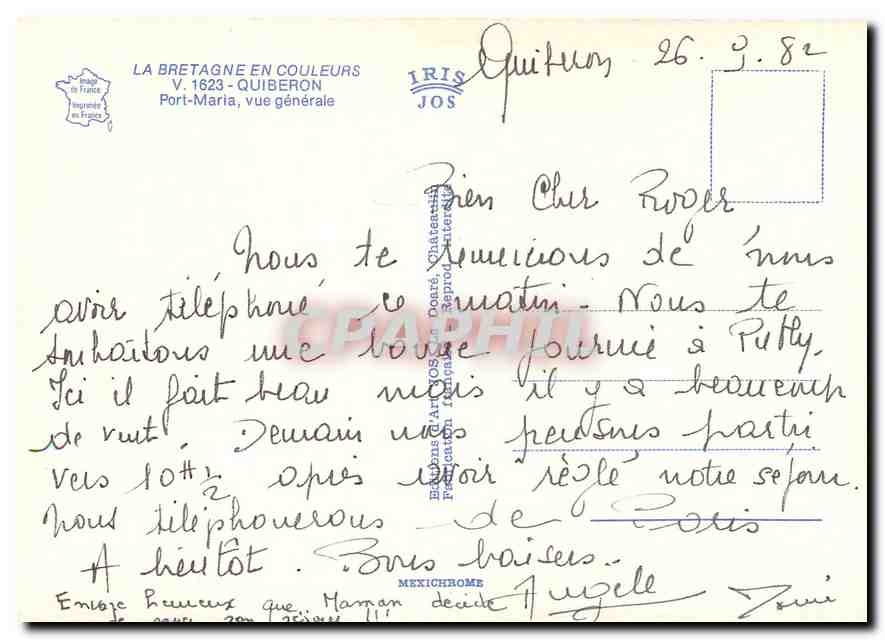 Image
de France
Imprimée
en France
LA BRETAGNE EN COULEURS
V. 1623 - QUIBERON
Port-Maria, vue générale
IRIS
JOS
Quiberon 26. 9. 82
Bien Cher Roger
Nous te remercions de nous
avoir téléphoné ce matin. Nous te
souhaitons une bonne journée à
Ici il fait beau mais il y a beaucoup
de vent. Demain nous pensons partir
vers 10H1/2 après avoir réglé notre séjour.
Nous téléphonerons de Paris
A bientôt. Bons baisers.
Angele
Encore heureux que Maman décide
de son séjour !!!
Editions d'Art JOS Le Doaré, Châteaulin
Fabrication française - Reprod. interdite
MEXICHROME
CPAPHIL